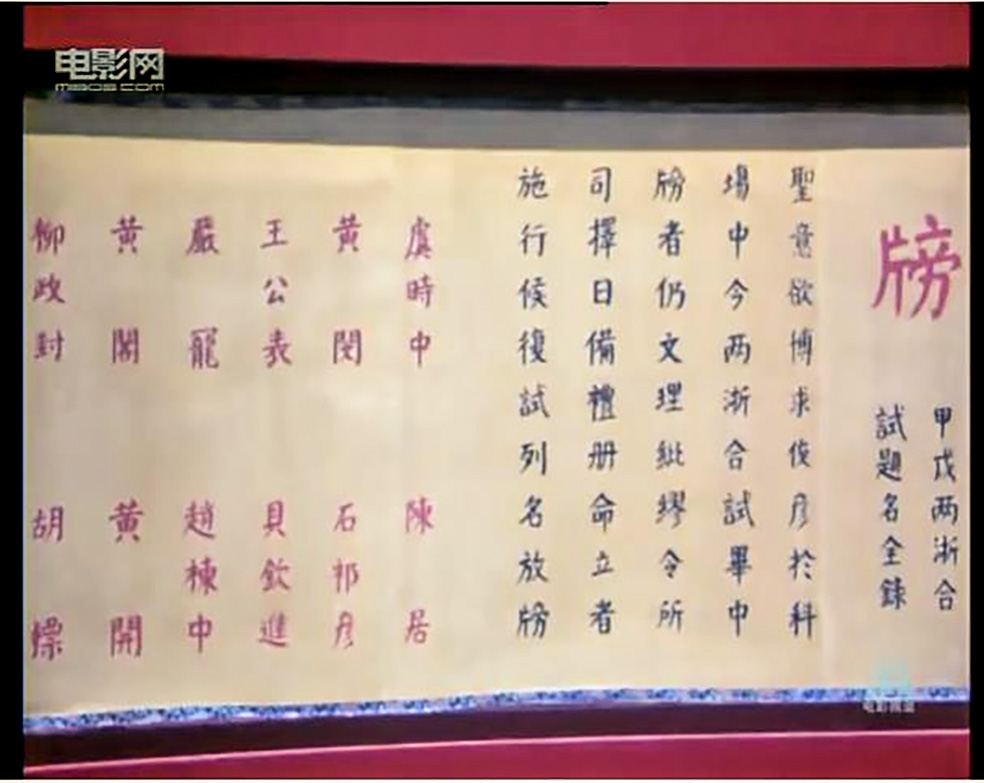 电影网
m1905.com
牓
甲戌两浙合
試題名全録
聖意欲博求俊彦於科
場中今两浙合試畢中
牓者仍文理紕繆令所
司擇日備禮册命立者
施行候復試列名放牓
虞時中 陳居
黄閔 石祁彦
王公表 貝欽進
嚴寵 趙棟中
黄閣 黄開
柳政封 胡
电影频道